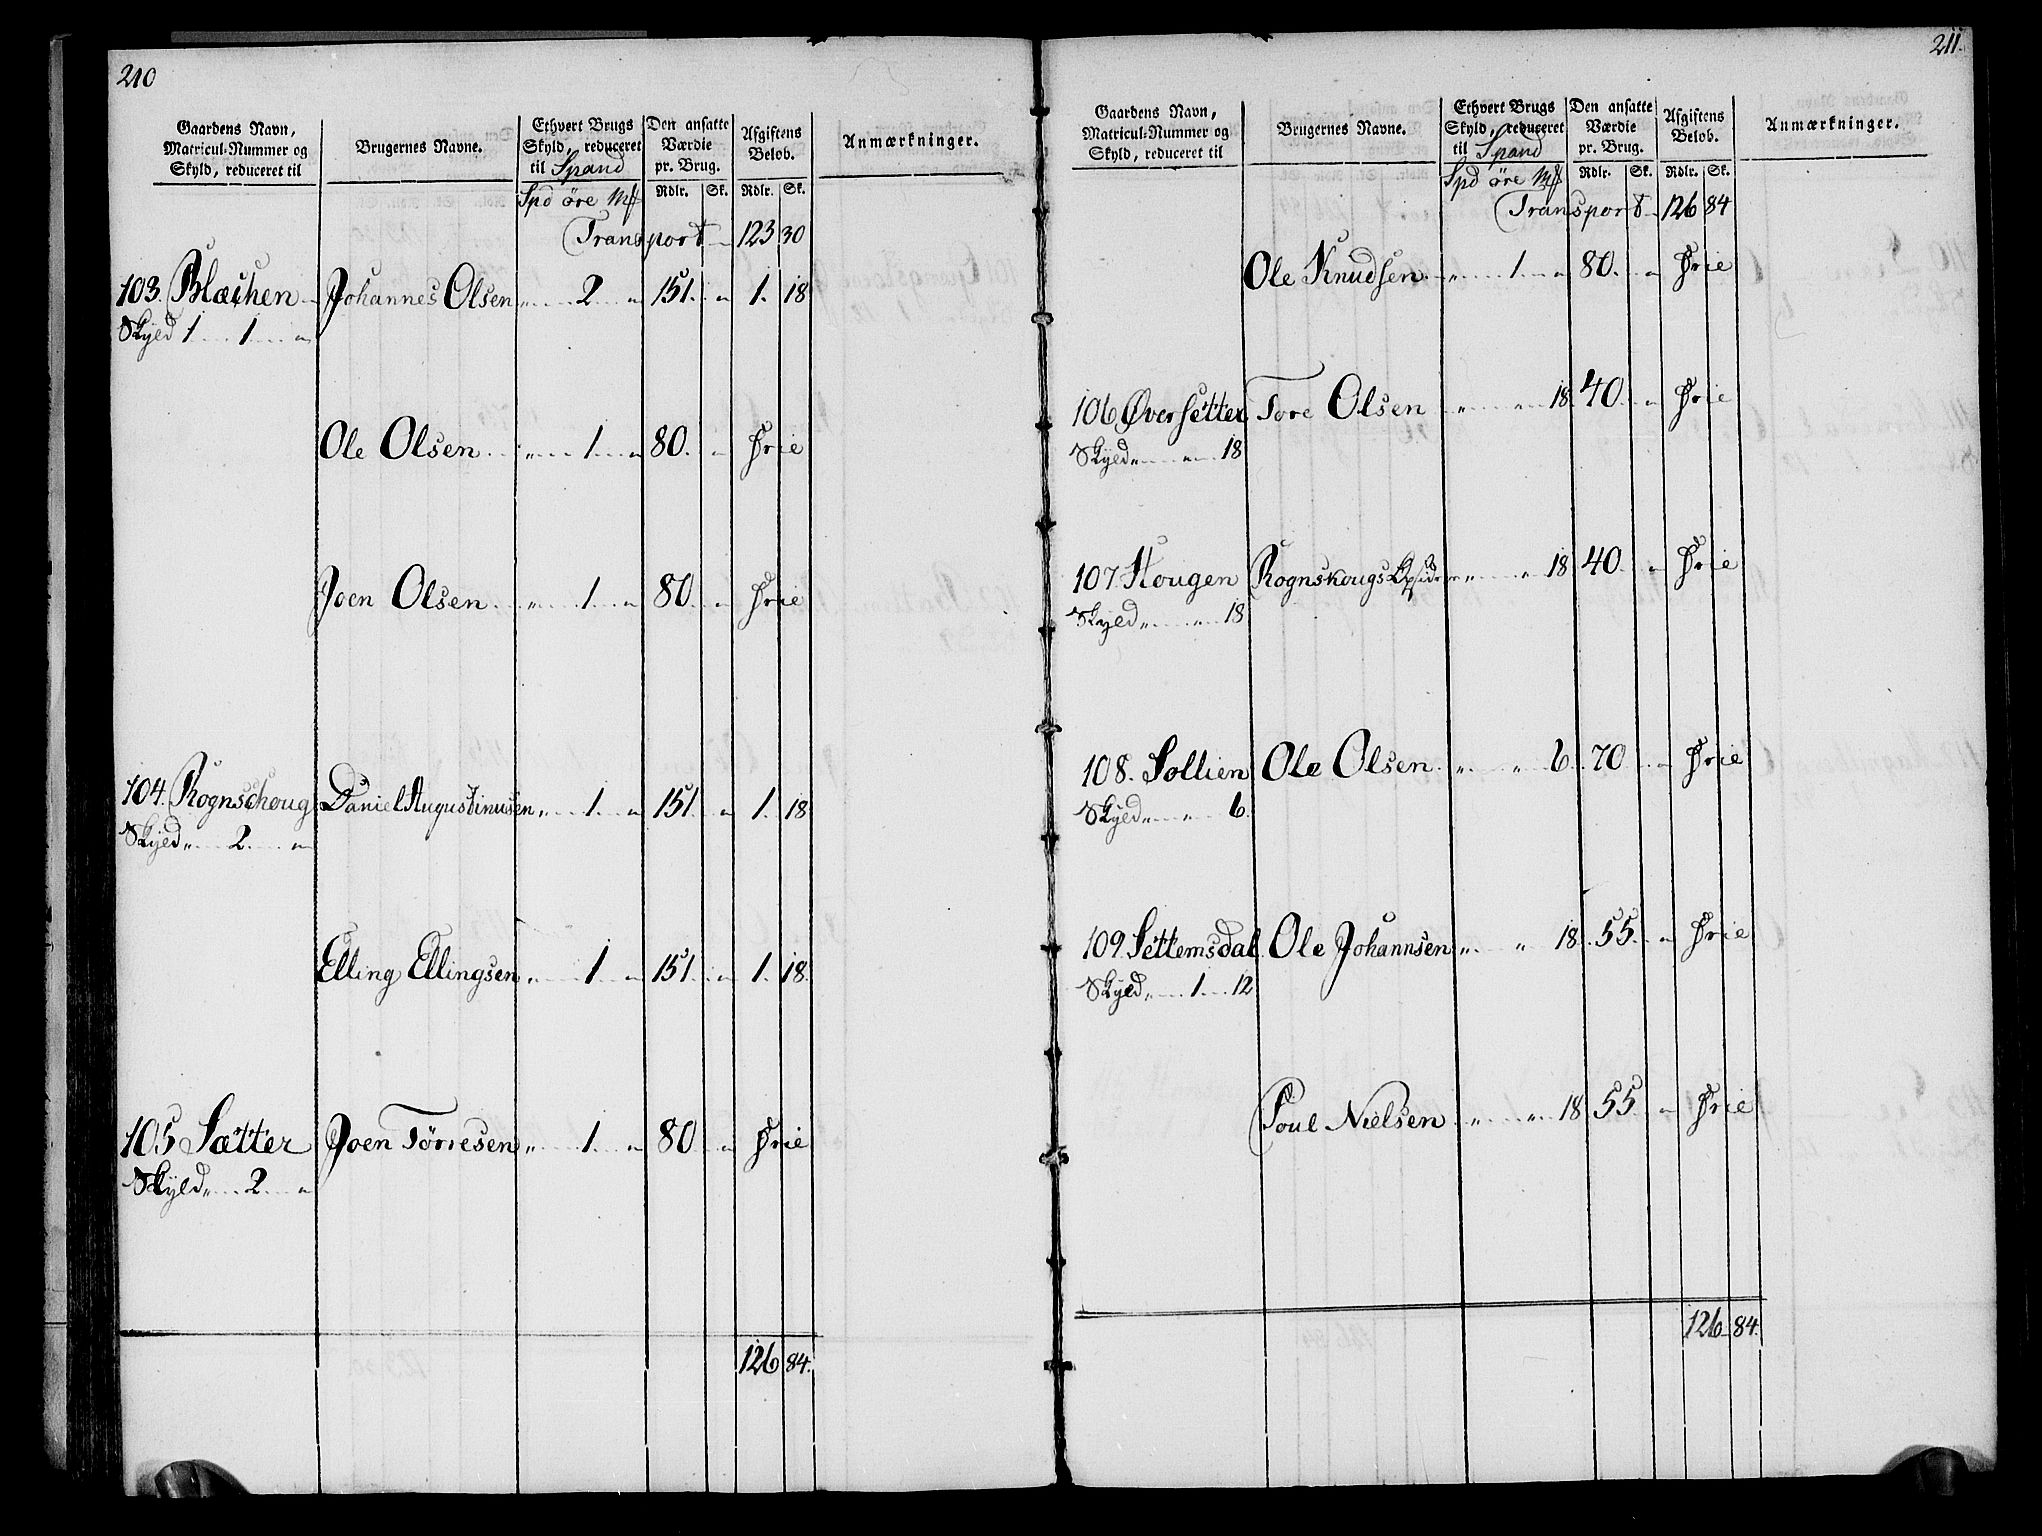 210
Gaardens Navn, Matricul-Nummer og Skyld, reduceret til
Brugernes Navne.
Ethvert Brugs Skyld, reduceret til Spand
Den ansatte Værdie pr. Brug.
Afgiftens Beløb.
Anmærkninger.
Spd øre Mk Rdlr. Sk. Rdlr. Sk.
Transport 123 30
103. Blæchen Johannes Olsen „ 2 „ 151 „ 1. 18
Skyld 1 1 „
Ole Olsen „ 1 „ 80. „ Frie
Joen Olsen „ 1 „ 80 „ Frie
104. Rognschoug Daniel Augustinusen „ 1 „ 151 „ 1. 18
Skyld „ 2 „
Elling Ellingsen „ 1 „ 151 „ 1. 18
105 Sætter Joen Torresen „ 1 „ 80 „ Frie
Skyld „ 2 „
126 84.
211
Gaardens Navn, Matricul-Nummer og Skyld, reduceret til
Brugernes Navne.
Ethvert Brugs Skyld, reduceret til Spand
Den ansatte Værdie pr. Brug.
Afgiftens Beløb.
Anmærkninger.
Spd øre Mk Rdlr. Sk. Rdlr. Sk.
Transport 126 84
Ole Knudsen „ 1 „ 80 „ Frie
106 Øversetter Tore Olsen „ „ 18 40 „ Frie
Skyld „ „ 18
107. Hougen Rognskougs „ „ 18 40 „ Frie
Skyld „ „ 18
108. Sollien Ole Olsen „ „ 6 70 „ Frie
Skyld „ „ 6.
109. Settemsdal Ole Johannsen „ „ 18 55 „ Frie
Skyld „ 1 12
Poul Nielsen „ „ 18 55 „ Frie
126 84.